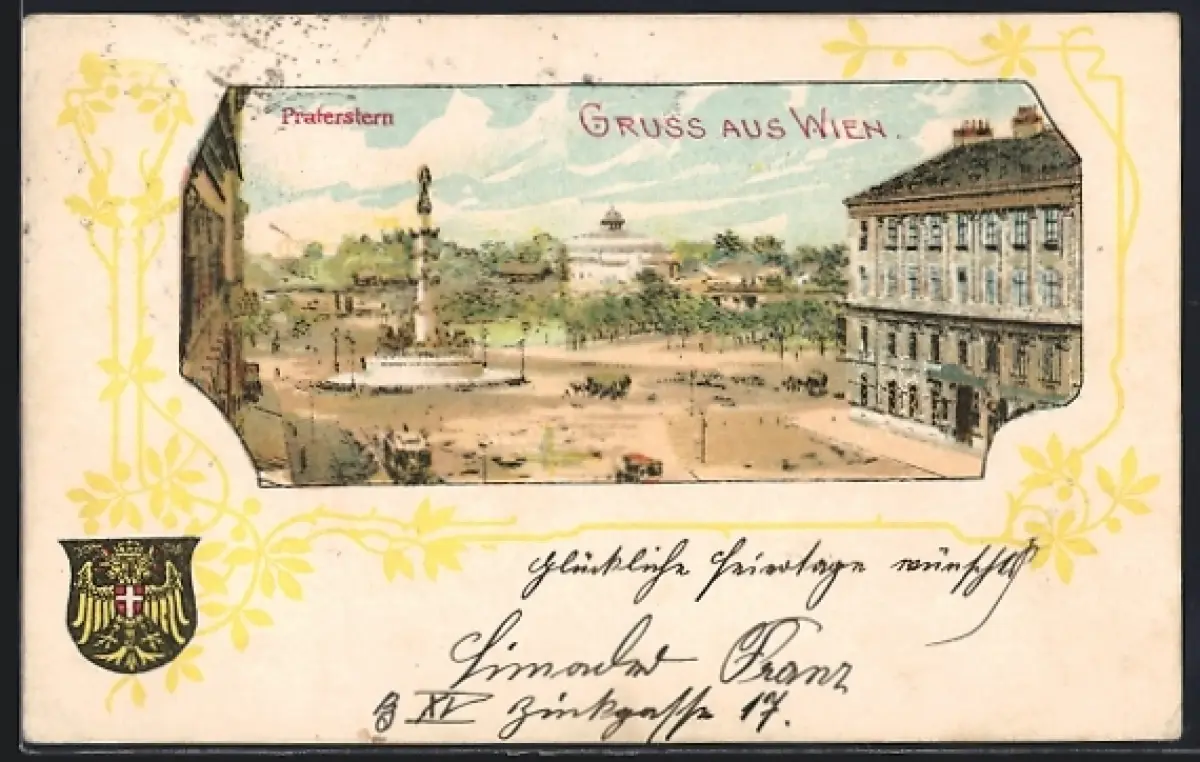 Praterstern
GRUSS AUS WIEN.
Glückliche Feiertage wünscht
Franz
XV Zinkgasse 17.